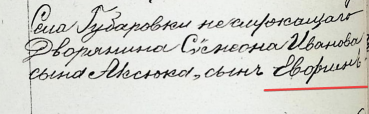 Села Губаровки неслужащаго
Дворянина Сѵмеона Иванова
сына Аксюка, сынъ